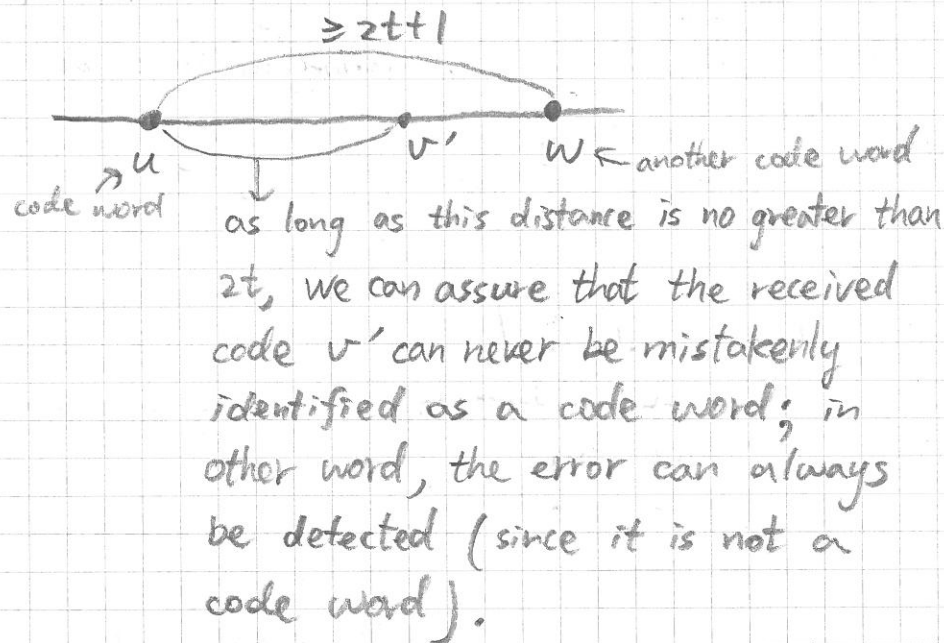 ≥ 2t+1
u v' w ← another code word
code word
as long as this distance is no greater than
2t, we can assure that the received
code v' can never be mistakenly
identified as a code word; in
other word, the error can always
be detected (since it is not a
code word).